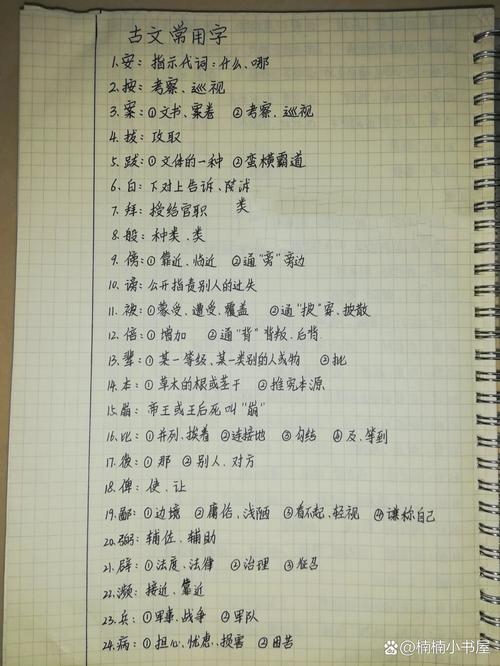 古文常用字
1.安：指示代词：什么、哪
2.按：考察、巡视
3.案：①文书、案卷 ②考察、巡视
4.拔：攻取
5.跋：①文体的一种 ②蛮横霸道
6.白：下对上告诉、陈述
7.拜：授给官职 类
8.般：种类、类
9.傍：①靠近、临近 ②通“旁”旁边
10.谤：公开指责别人的过失
11.被：①蒙受、遭受、覆盖 ②通“披”穿、披散
12.倍：①增加 ②通“背”背叛、后背
13.辈：①某一等级、某一类别的人或物 ②批
14.本：①草木的根或茎干 ②推究本源
15.崩：帝王或王后死叫“崩”
16.比：①并列、挨着 ②连接地 ③勾结 ④及、等到
17.彼：①那 ②别人、对方
18.俾：使、让
19.鄙：①边境 ②庸俗、浅陋 ③看不起、轻视 ④谦称自己
20.弼：辅佐、辅助
21.辟：①法度、法律 ②治理 ③征召
22.濒：接近、靠近
23.兵：①军事、战争 ②军队
24.病：①担心、忧患、损害 ②困苦
@楠楠小书屋